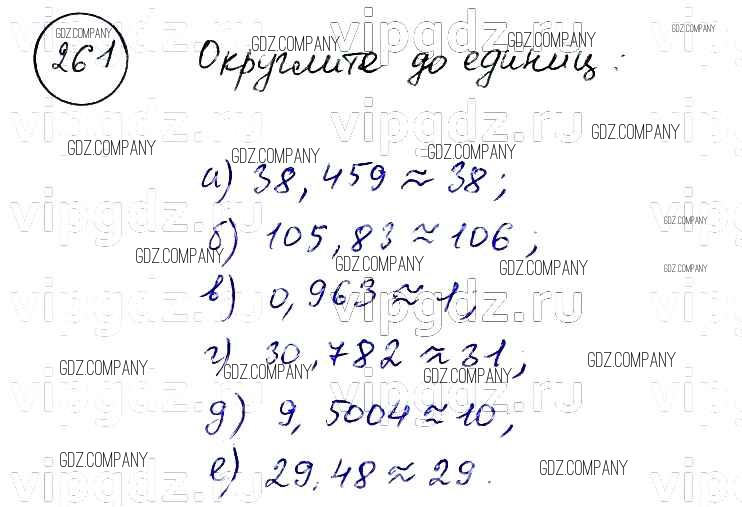 261 Округлите до единиц:
а) 38,459 ≈ 38;
б) 105,83 ≈ 106;
в) 0,963 ≈ 1;
г) 30,782 ≈ 31;
д) 9,5004 ≈ 10;
е) 29,48 ≈ 29.
GDZ.COMPANY
vipgdz.ru